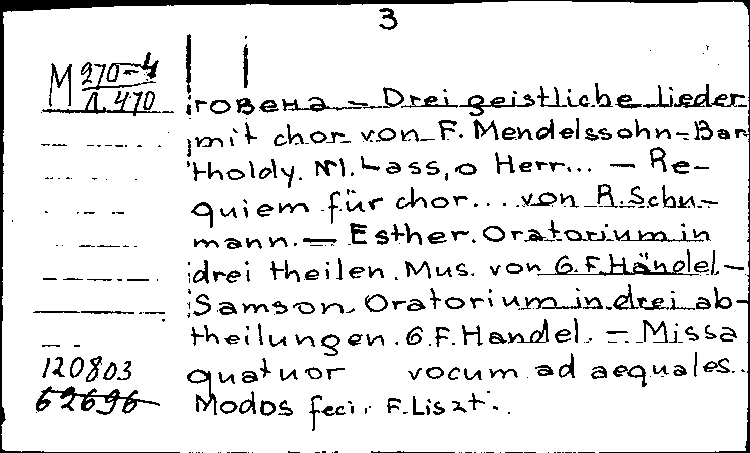 3
M 270-4
Л. 470
говена – Drei geistliche lieder
mit chor von F. Mendelssohn-Bar
tholdy. №1. Lass, o Herr... – Re-
quiem für chor... von R. Schu-
mann. – Esther. Oratorium in
drei theilen. Mus. von G.F. Händel. –
Samson Oratorium in drei ab-
theilungen. G.F. Handel. – Missa
quatuor vocum ad aequales..
Modos feci. F. Liszt..
120803
62696